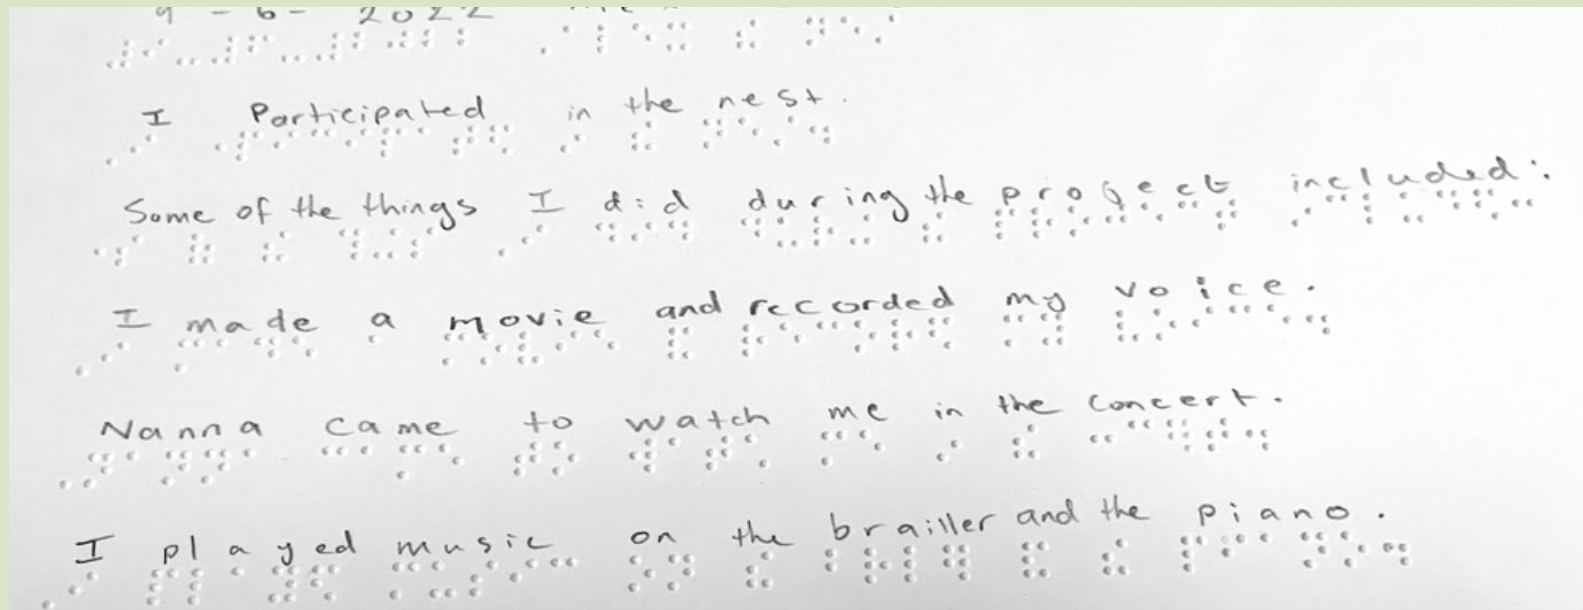 9 - 6 - 2022
I Participated in the nest.
Some of the things I did during the project included:
I made a movie and recorded my voice.
Nanna came to watch me in the concert.
I played music on the brailler and the piano.